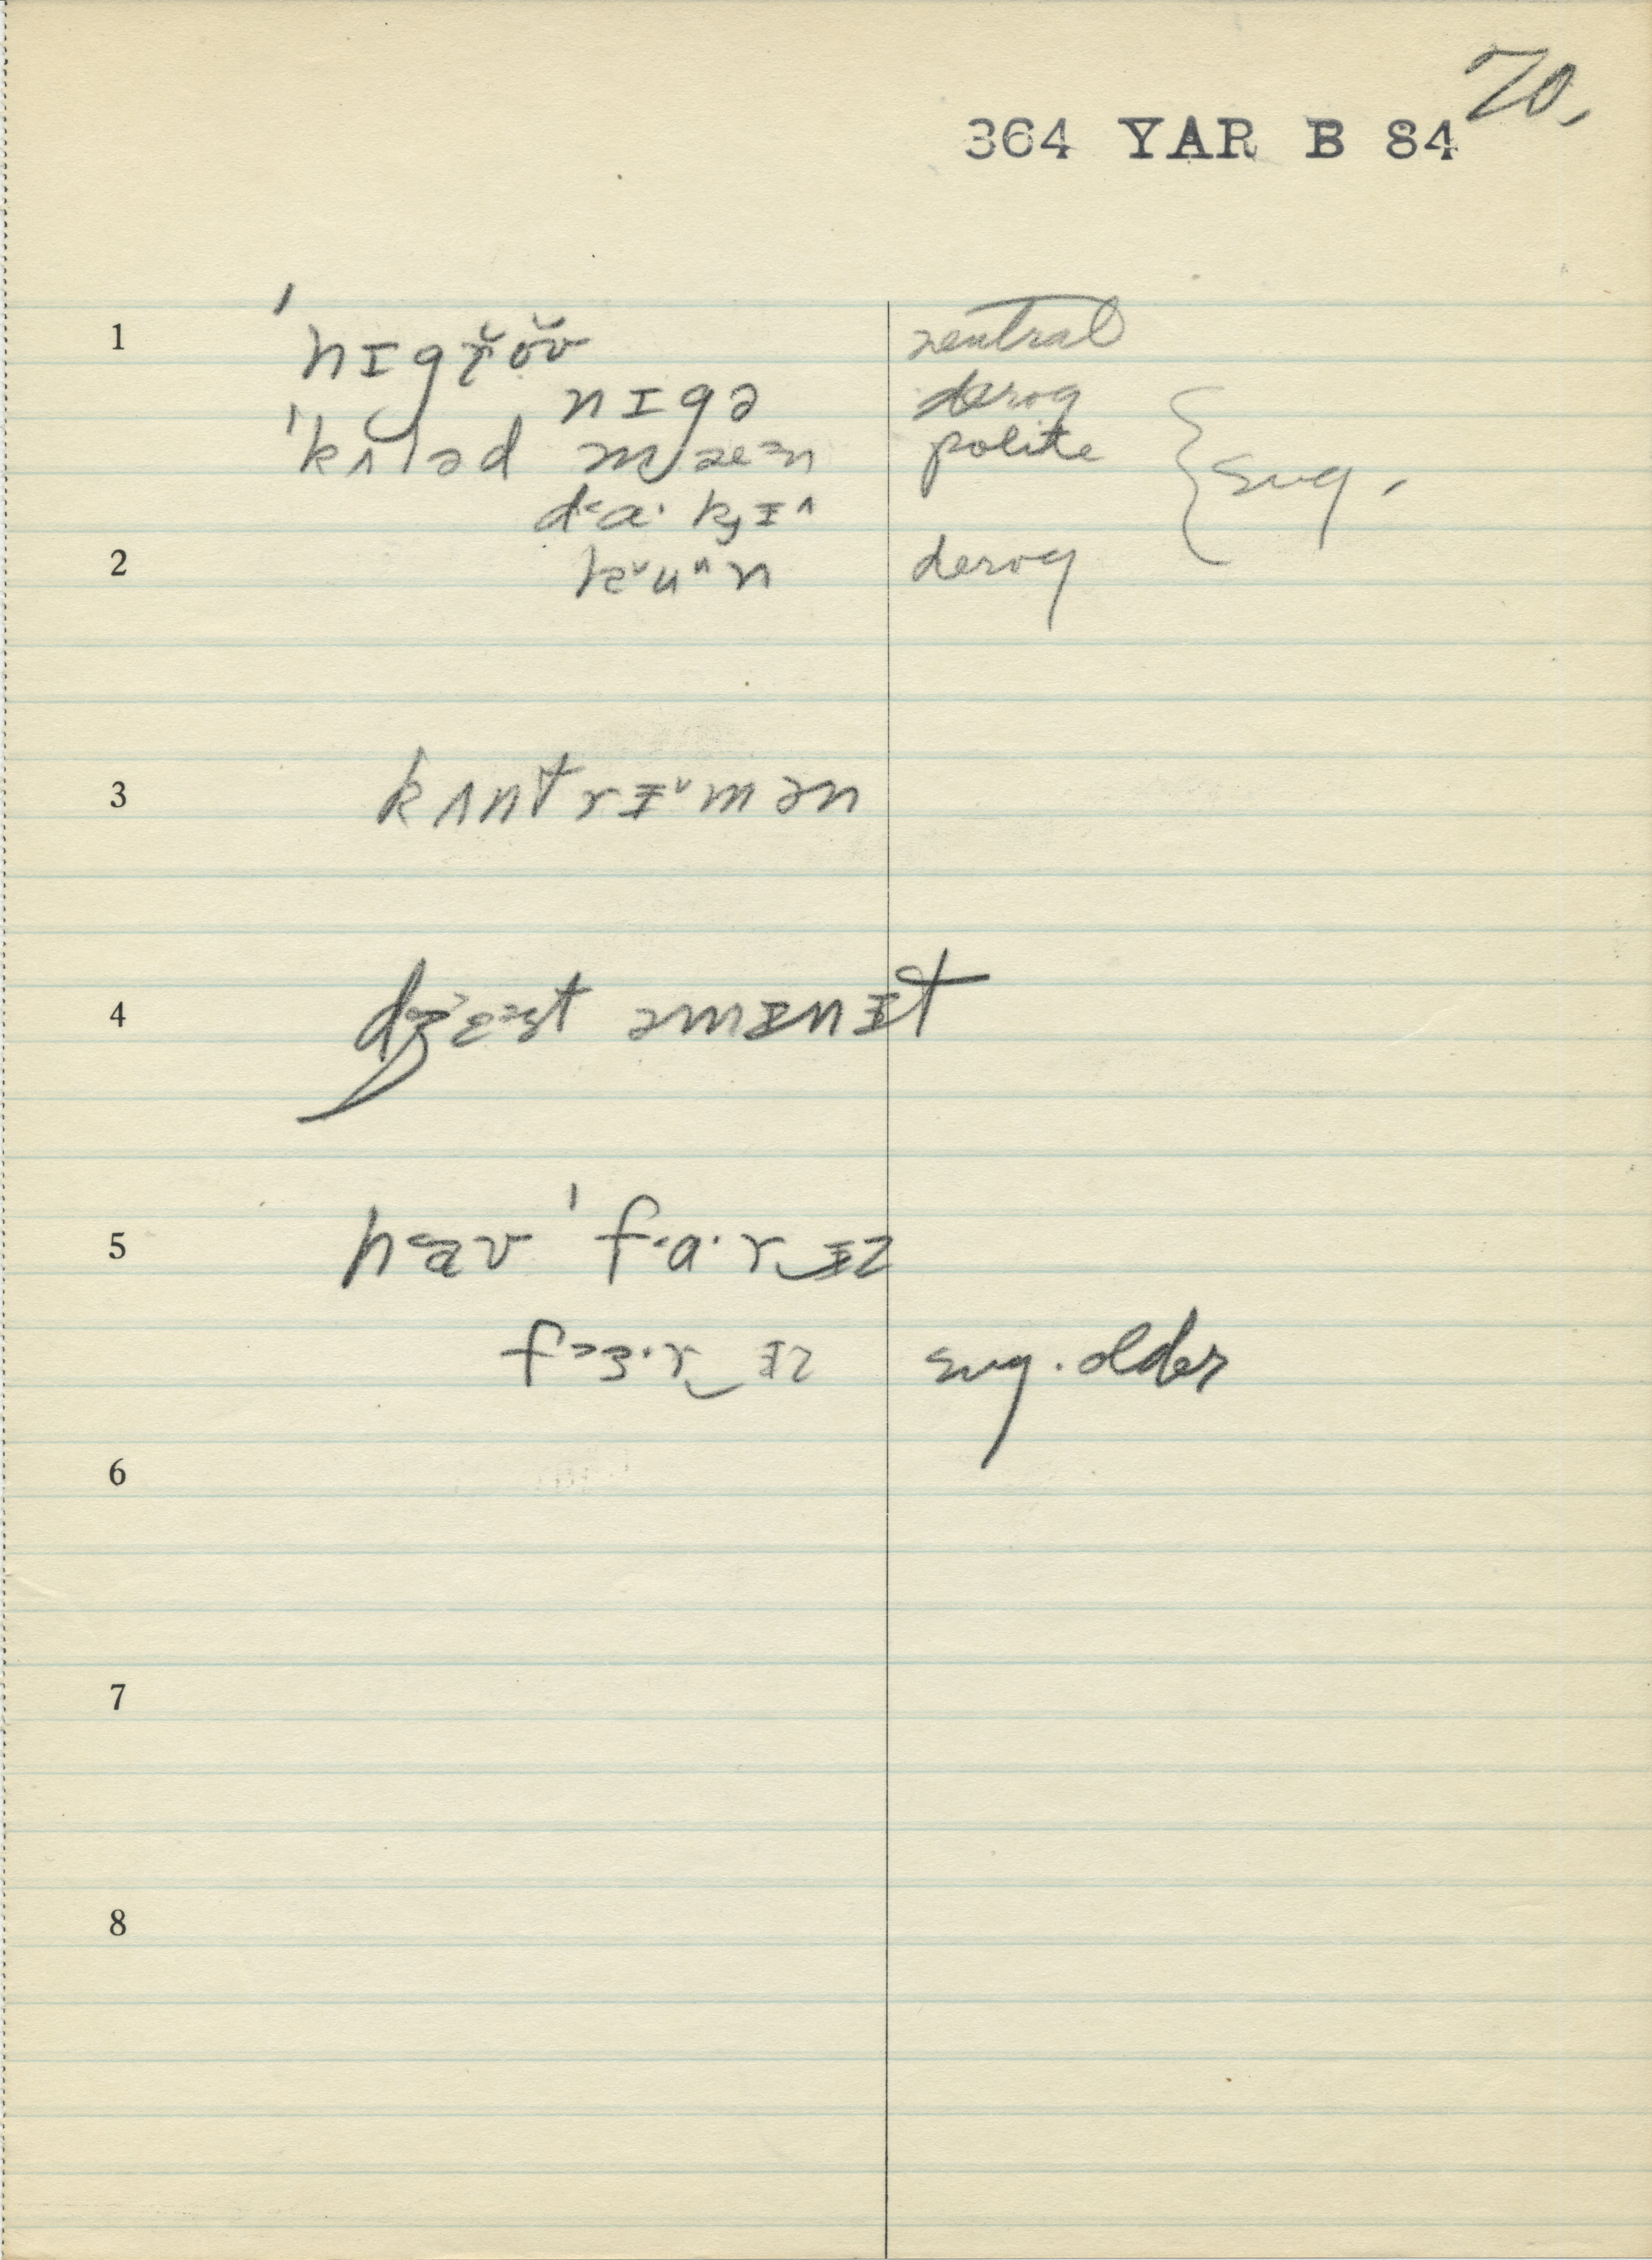 70.
364 YAR B 84
1 ˈnɪgr̆ŏʊ̆ neutral
nɪgə derog
ˈkʌləd mæ˃n polite
d˂a· kyɪ^ sug.
2 k˅u^n derog
3 kʌntrɨ˅mən
4 dʒ˃ɛ˃st əmɪnɨt
5 h˂aʊ ˈf·a·r‿ɨz
f˃ɜ·r‿ɨz sug. older
6
7
8